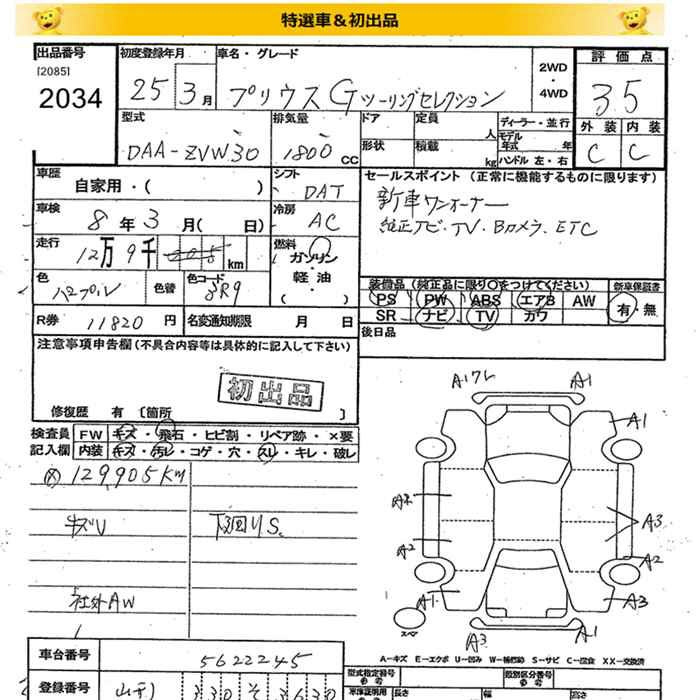 特選車＆初出品
出品番号 初度登録年月 車名・グレード 2WD・4WD 評価点
[2085]
2034 25年 3月 プリウス Gツーリングセレクション 3.5
型式 排気量 ドア 定員 人 ディーラー・並行 外装 内装
DAA-ZVW30 1800cc 形状 積載 kg モデル年式 年 C C
ハンドル 左・右
車歴 自家用・( ) シフト DAT セールスポイント (正常に機能するものに限ります)
車検 8年 3月( 日) 冷房 AC 新車ワンオーナー
純正ナビ・TV・Bカメラ、ETC
走行 12万9千 km 燃料 ガソリン・軽油・( )
色 パープル 色替 色コード 装備品 (純正品に限り○をつけてください) 新車保証書
PS PW ABS エアB AW 有・無
SR ナビ TV カワ
R券 11820円 名変通知期限 月 日 後日品
注意事項申告欄 (不具合内容等は具体的に記入して下さい)
初出品
修復歴 有 [箇所 ]
検査員記入欄 FW キズ・飛石・ヒビ割・リペア跡・×要
内装 キズ・汚レ・コゲ・穴・スレ・キレ・破レ
129,905km
キズU 下回りS
社外AW
A1ワレ A1
A1
A2
A3
A2 A2
A1 A3
スペ
A3 A1
A-キズ E-エクボ U-凹み W-補修跡 S-サビ C-腐食 XX-交換済
車台番号 5622245 型式指定番号 参考 類別区分番号 参考
登録番号 330 そ 3630 長さ 幅 高さ